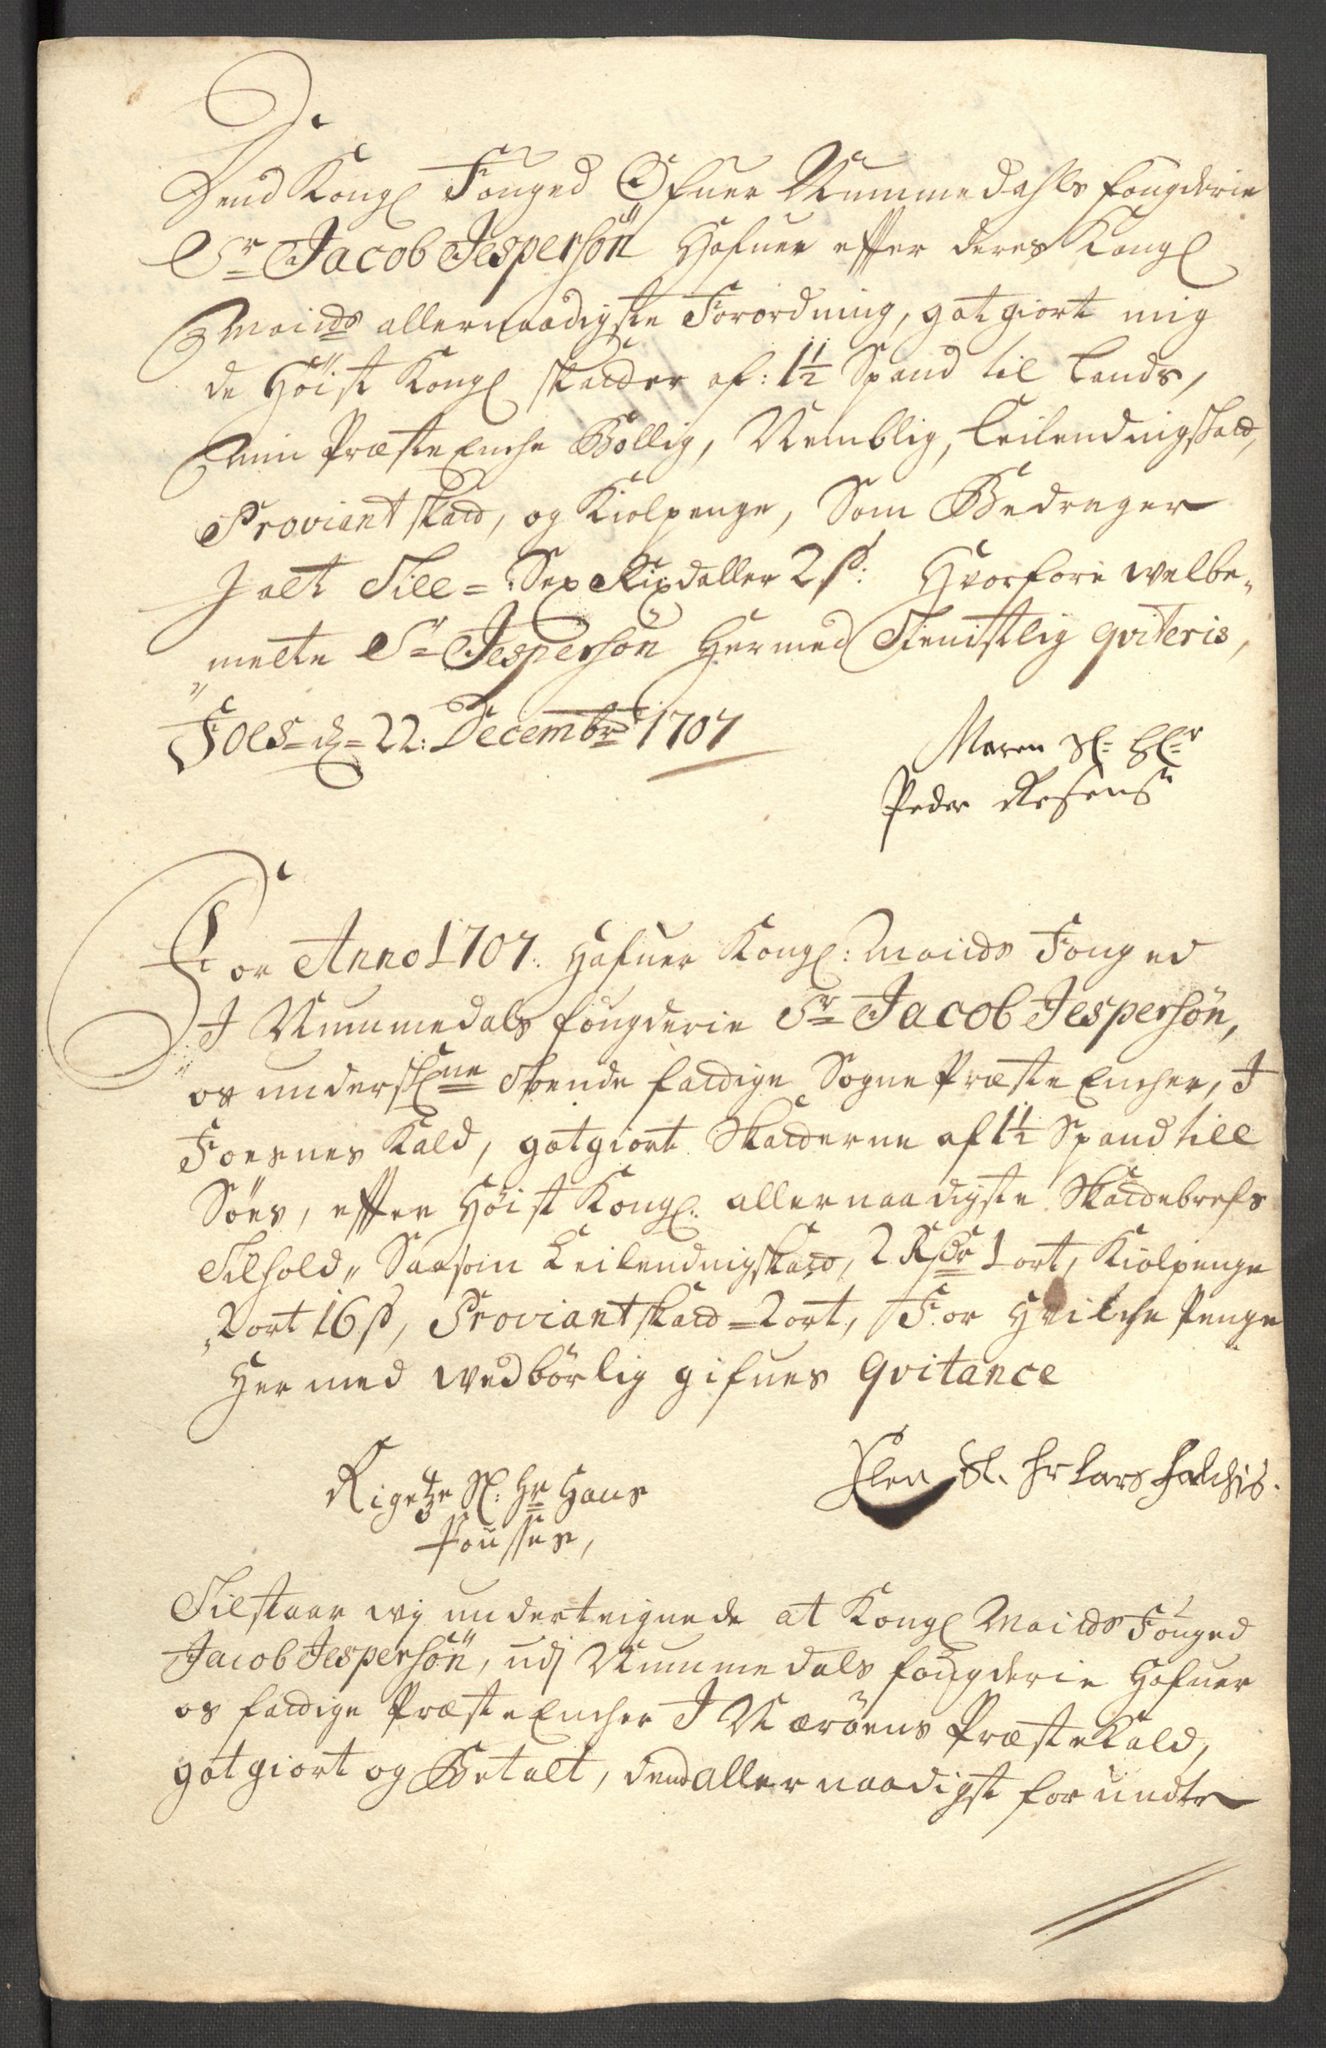 Dend Kongl Fouged Ofuer Nummedahls fougderie
Sr Jacob Jespersön Hafuer effter deres Kongl
Maiids allernaadigste Forordning, gotgiort mig
de Höist Kongl skatder af: 1½ Spand til Lands,
Min Præste Enche Bollig, Nemblig, Leilendingskatd,
Proviant skatd, og Kiolpenge, Som Bedrager
Jalt Till = Sex Rixdaller 2 s: Hvorfore welbe-
melte Sr Jespersön Hermed Tienistlig qviteris,
Foes d= 22: Decembr 1707
Maren Sl: Hr
Peder Resens
For Anno 1707. Hafuer Kongl: Maiids Fouged
I Nummedals fougderie Sr Jacob Jespersön,
os underskne Tvende fatdige Sogne Præste Encher, I
Foesnes Kald, gotgiort Skatderne af 1½ Spand till
Söes, effter Höist Kongl. allernaadigste Skatdebrefs
Tilhold, Saasom Leilendingskatd, 2 Rdr 1 ort, Kiolpenge
2 ort 16 s, Proviantskatd = 2 ort, For Hvilche Penge
Hermed wedbörlig gifues Qvitance
Rigetze Sl: Hr Hans Elen Sl. Hr Lars Falchis.
Pousses,
Tilstaar wij underteignede at Kongl Maiids Fouged
Jacob Jespersön, udj Nummedals fougderie Hafuer
os fatdige Præste Encher I Næröens Præste Kald,
gotgiort og Betalt, dend allernaadigst forundte